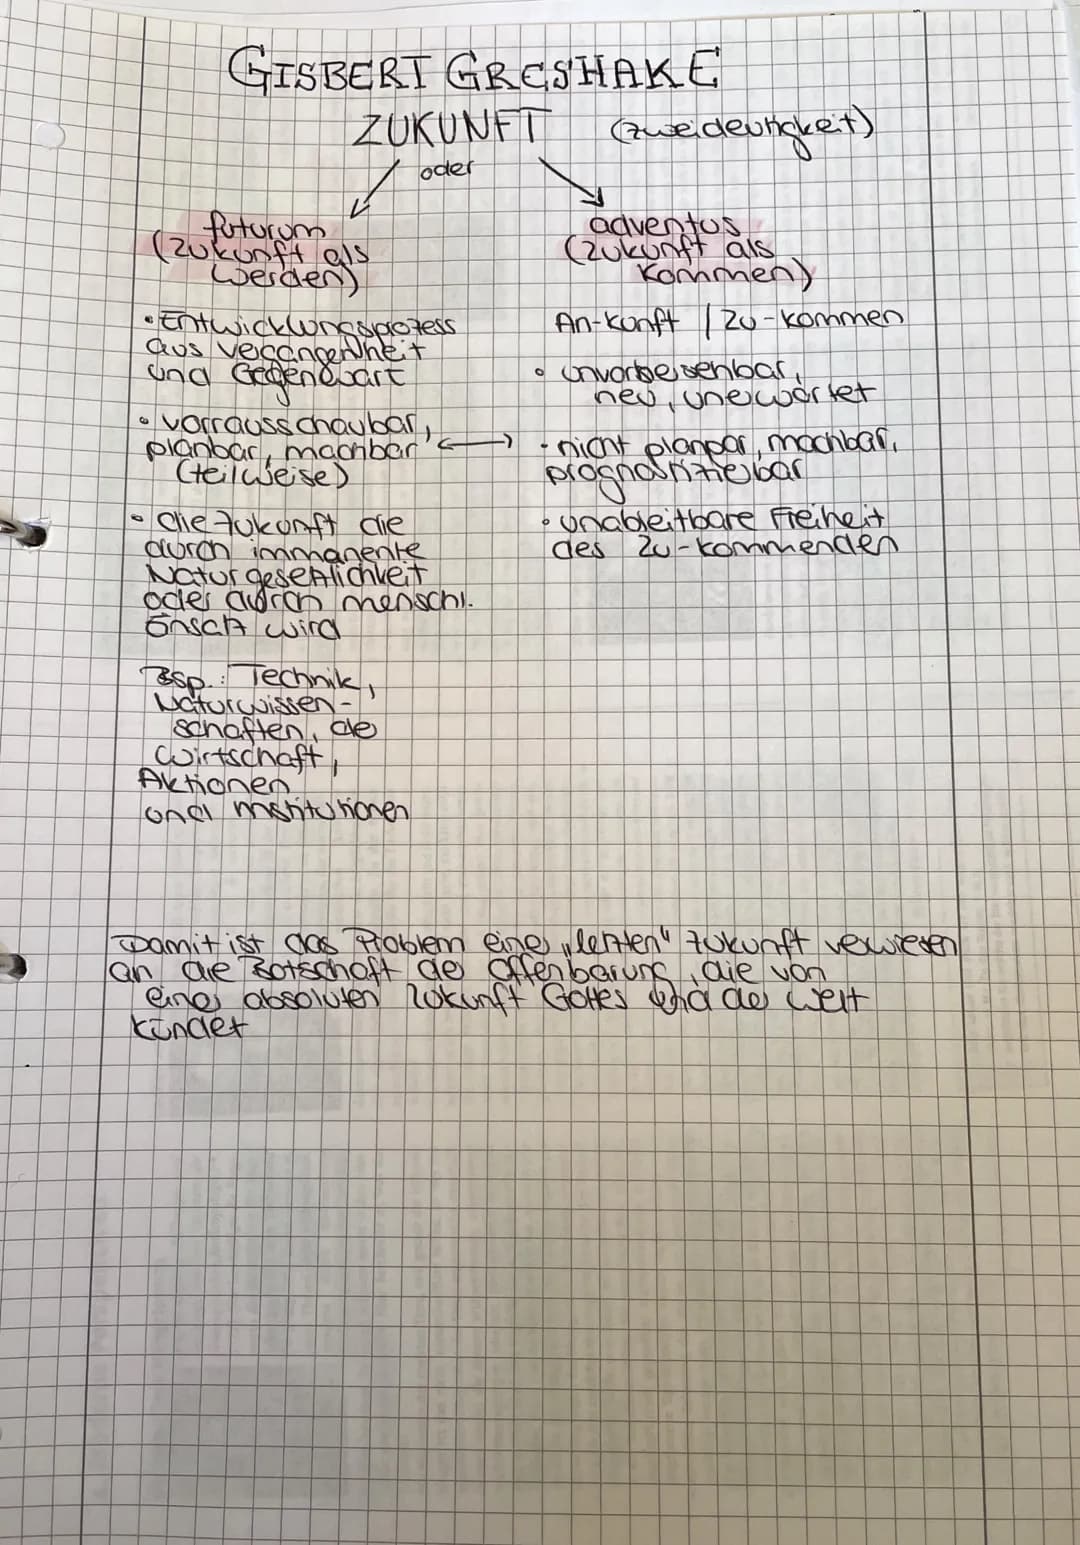 GISBERT GRESHAKE
ZUKUNFT (zweideutigkeit)
oder
futurum
(Zukunft als
Werden)
• Entwicklungsprozess
aus vergangenheit
und Gegenwart
• vorrausschaubar,
planbar, machbar
(teilweise)
• die Zukunft die
durch immanente
Naturgesetzlichkeit
oder durch menschl.
Einsatz wird
Bsp.: Technik,
Naturwissen-
schaften, die
Wirtschaft,
Aktionen
und Institutionen
adventus
(Zukunft als
Kommen)
An-kunft / Zu-kommen
• unvorhersehbar,
neu, unerwartet
• nicht planbar, machbar,
prognostizierbar
• unableitbare Freiheit
des Zu-kommenden
Damit ist das Problem einer „letzten" Zukunft verwiesen
an die Botschaft der Offenbarung, die von
einer absoluten Zukunft Gottes und der Welt
kündet